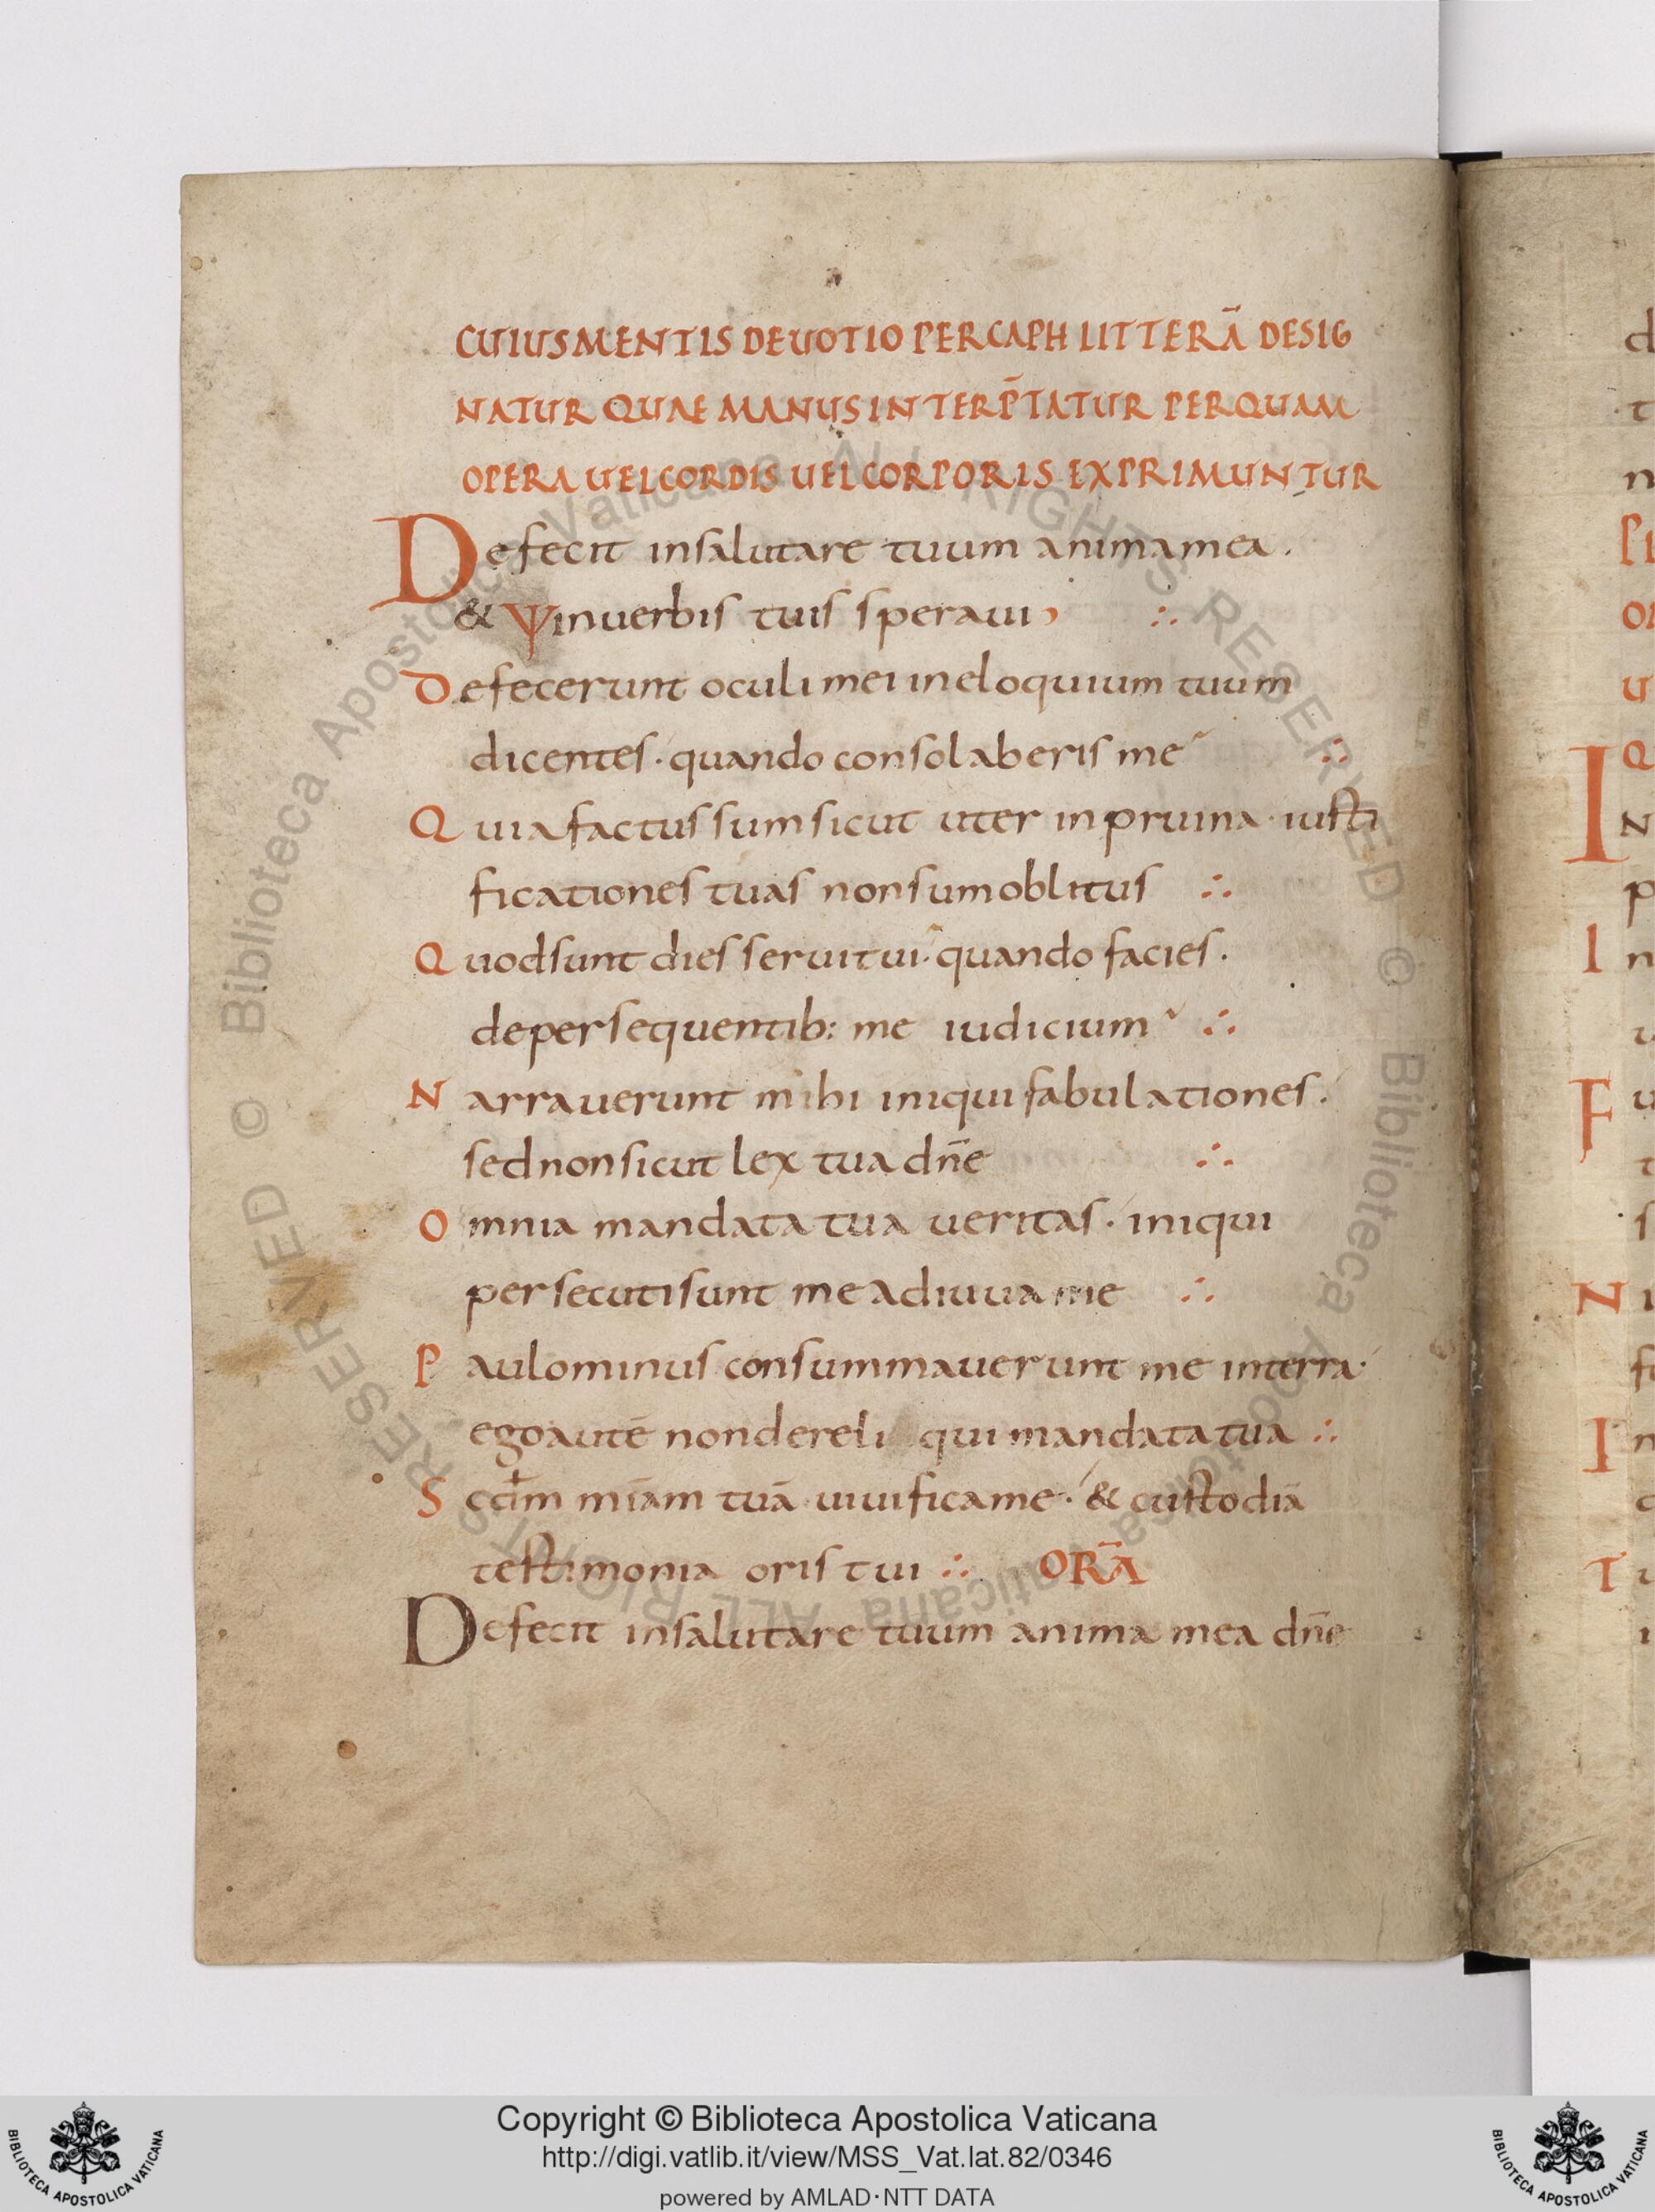 CUIUS MENTIS DEUOTIO PER CAPH LITTERĀ DESIG
NATUR QUAE MANUS INTERP̄TATUR PER QUAM
OPERA UEL CORDIS UEL CORPORIS EXPRIMUNTUR
Defecit in salutare tuum anima mea.
& Ψ in uerbis tuis speraui ∴
Defecerunt oculi mei in eloquium tuum
dicentes · quando consolaberis me ∴
Quia factus sum sicut uter in pruina · iusti
ficationes tuas non sum oblitus ∴
Quod sunt dies serui tui · quando facies.
de persequentib: me iudicium ∴
Narrauerunt mihi iniqui fabulationes.
sed non sicut lex tua dn̄e ∴
Omnia mandata tua ueritas · iniqui
persecuti sunt me adiuua me ∴
Paulo minus consummauerunt me in terra ·
ego autē non dereli qui mandata tua ∴
Scdm miam tuā uiuifica me · & custodiā
testimonia oris tui ∴ ORĀ
Defecit in salutare tuum anima mea dn̄e
Copyright © Biblioteca Apostolica Vaticana
http://digi.vatlib.it/view/MSS_Vat.lat.82/0346
powered by AMLAD·NTT DATA
BIBLIOTECA APOSTOLICA VATICANA
BIBLIOTECA APOSTOLICA VATICANA
© Biblioteca Apostolica Vaticana ALL RIGHTS RESERVED © Biblioteca Apostolica Vaticana ALL RIGHTS RESERVED